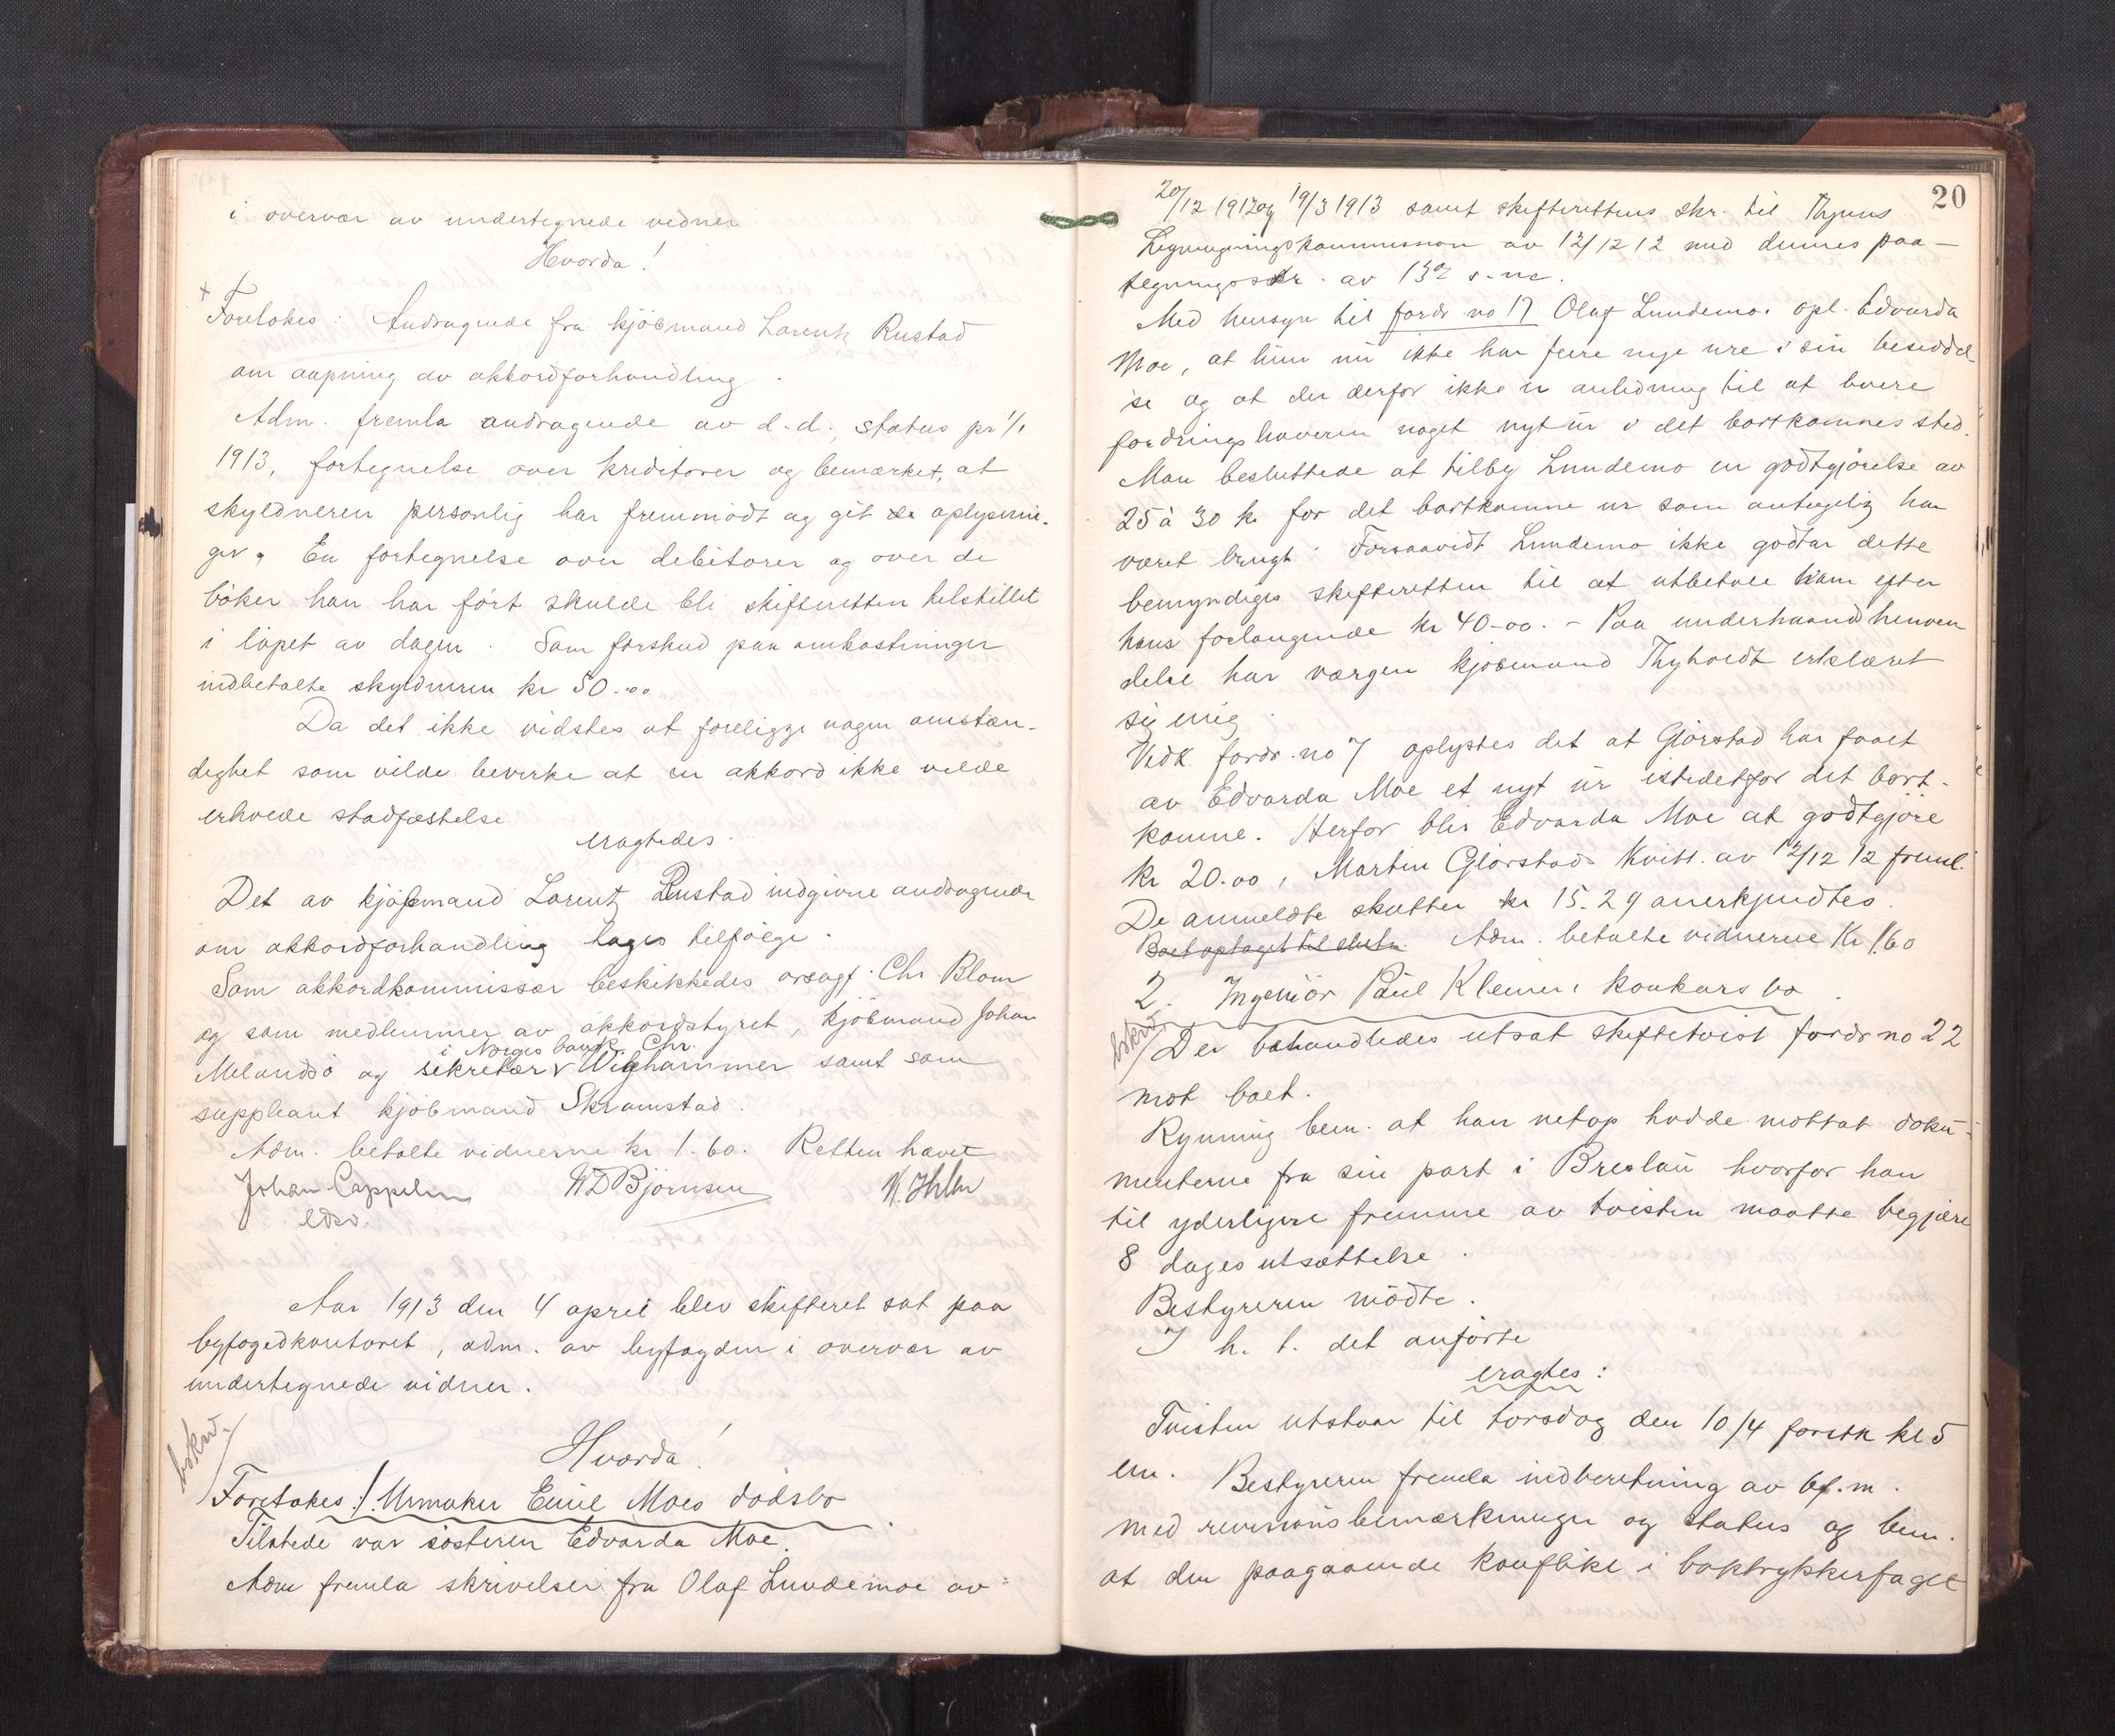 i overvær av undertegnede vidner
Hvorda!
+
Foretokes: Andragende fra kjöbmand Lorentz Rustad
om aapning av akkordforhandling.
Adm. fremla andragende av d.d., status pr 1/1
1913, fortegnelse over kreditorer og bemærket, at
skyldneren personlig har fremmödt og git de oplysnin-
ger. En fortegnelse over debitorer og over de
böker han har fört skulde bli skifteretten tilstillet
i löpet av dagen. Som forskud paa omkostninger
indbetalte skyldneren kr 50.00
Da det ikke vidstes at foreligge nogen omstæn-
dighet som vilde bevirke at en akkord ikke vilde
erhverve stadfæstelse
eragtedes.
Det av kjöbmand Lorentz Rustad indgivne andragende
om akkordforhandling tages tilfölge.
Som akkordkommissær beskikkedes orsagf. Chr Blom
og som medlemmer av akkordstyret, kjöbmand Johan
i Norges bank Chr.
Melandsö og sekretær Wighammer samt som
suppleant kjöbmand Skramstad.
Adm. betalte vidnerne kr 1.60. Retten hævet
Johan Cappelen WDBjörnsen N. Ihlen
edsv.
Aar 1913 den 4 april blev skifteret sat paa
byfogedkontoret, adm. av byfogden i overvær av
undertegnede vidner.
bokw.
Hvorda!
Foretokes: 1. Urmaker Emil Moes dödsbo.
Tilstede var sösteren Edvarda Moe.
Adm fremla skrivelser fra Olaf Lundemoe av
20
20/12 1912 og 19/3 1913 samt skifterettens skr. til Thjems
Ligningskommission av 12/12 12 med dennes paa-
tegningsskr. av 13de s. m.
Med hensyn til fordr no 17 Olaf Lundemo. opl. Edvarda
Moe, at hun nu ikke har flere nye ure i sin besiddel-
se og at der derfor ikke er anledning til at levere
fordringshaveren noget nyt ur i det bortkomnes sted.
Man besluttede at tilby Lundemo en godtgjörelse av
25 à 30 kr for det bortkomne ur som antagelig har
været brugt. Forsaavidt Lundemo ikke godtar dette
bemyndiges skifteretten til at utbetale ham efter
hans forlangende kr 40-00. - Paa underhaandhenven
delse har værgen kjöbmand Thyholdt erklæret
sig enig.
Vedk. fordr. no 7 oplystes det at Glörstad har faaet
av Edvarda Moe et nyt ur istedetfor det bort-
komne. Herfor blir Edvarda Moe at godtgjöre
kr 20.00, Martin Glörstads kvitt. av 12/12 12 freml.
De anmeldte skatter kr 15.29 anerkjendtes.
Boet optages til slutn. Adm. betalte vidnerne kr 1.60
2. Ingeniör Paul Kleiners konkursbo.
bokw.
Der behandledes utsat skiftetvist fordr no 22
mot boet.
Rynning bem. at han netop hadde mottat doku-
menterne fra sin part i Breslau hvorfor han
til yderligere fremme av tvisten maatte begjære
8 dages utsættelse.
Bestyreren mödte.
I h. t. det anförte
eragtes:
Tvisten utstaar til torsdag den 10/4 forstk kl 5
em. Bestyreren fremla indberetning av 6 f. m.
med revisionsbemærkninger og status og bem.
at den paagaaende konflikt i boktrykkerfaget